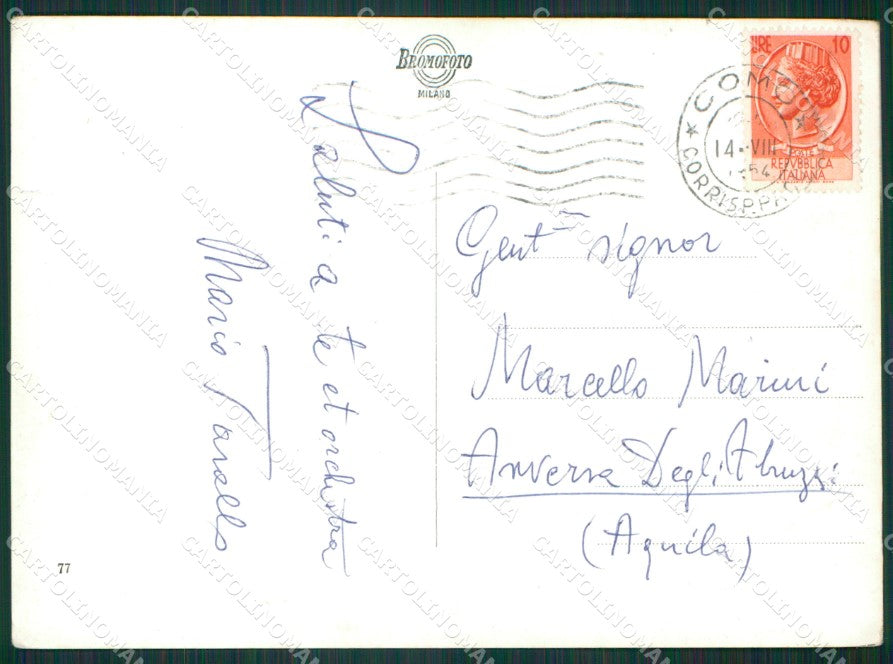 BROMOFOTO
MILANO
LIRE 10
POSTE
REPVBBLICA
ITALIANA
COMO
CORRISP.PA
14-VIII
Saluti a te et orchestra
Mario
Gent signor
Marcello Marini
Anversa Degli Abruzzi
(Aquila)
77
CARTOLINOMANIA